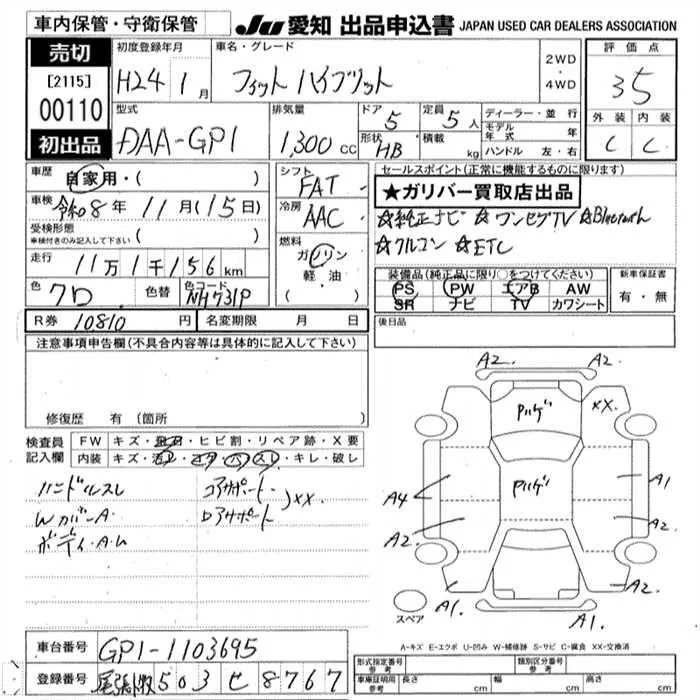 車内保管・守衛保管
JU 愛知 出品申込書 JAPAN USED CAR DEALERS ASSOCIATION
売切
[2115]
00110
初出品
初度登録年月
H24年 1月
車名・グレード
フィット ハイブリット
2WD
・
4WD
評価点
3.5
外装 内装
C C
型式
DAA-GP1
排気量
1,300 CC
ドア 5
形状 HB
定員 5人
積載 kg
ディーラー・並行
モデル年式 年
ハンドル 左・右
車歴 自家用・( )
車検 令和8年 11月(15日)
受検形態
車検付きのみ記入して下さい ( )
走行 11万1千156km
色 クロ 色替 色コード NH731P
シフト
FAT
冷房
AAC
燃料
ガソリン
軽・油
( )
セールスポイント(正常に機能するものに限ります)
★ガリバー買取店出品
☆純正ナビ ☆ワンセグTV ☆Bluetooth
☆クルコン ☆ETC
装備品(純正品に限り○をつけてください)
PS PW エアB AW
SR ナビ TV カワシート
新車保証書
有・無
R券 10810 円 名変期限 月 日
後日品
注意事項申告欄(不具合内容等は具体的に記入して下さい)
修復歴 有(箇所 )
検査員記入欄
FW キズ・ ・ヒビ割・リペア跡・X要
内装 キズ・ ・キレ・破レ
ハンドルスレ
Wカバー A
ボディ・A.U
コアサポート
ロアサポート
XX
A2. A2.
XX.
A4
A1
A2.
A2.
A2.
A1. A1.
スペア
A-キズ E-エクボ U-凹み W-補修跡 S-サビ C-腐食 XX-交換済
車台番号 GP1-1103695
登録番号 尾張小牧 503 セ 8767
形式指定番号 参考
類別区分番号 参考
車庫証明用 参考 長さ cm 幅 cm 高さ cm